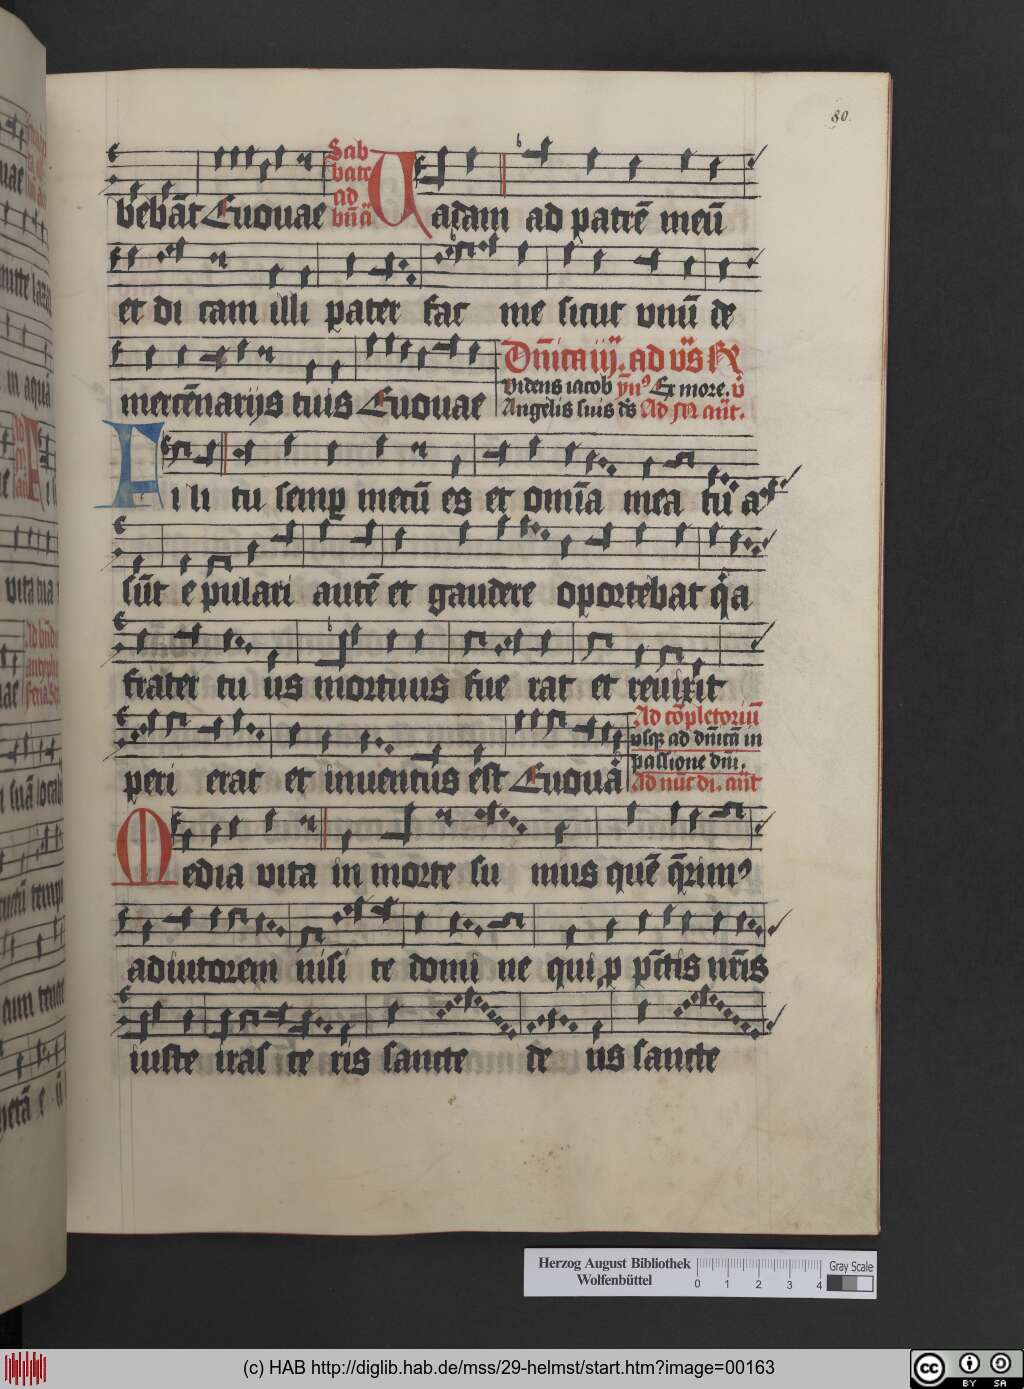 80.
bebāt Euouae
Sab
bato
ad
bn̄ā
Vadam ad patrē meū
et di cam illi pater fac me sicut vnū de
mercēnariis tuis Euouae
Dn̄ica iij. ad vs̄ R
Videns iacob yn⁹ Ex more. v̄
Angelis suis ds̄ Ad M an̄t.
Fi li tu semp mecū es et omīa mea tu a
sūt e pulari autē et gaudere oportebat qͣa
frater tu us mortuus fue rat et reuixit
peri erat et inuentus est Euoua
Ad cōpletoriū
vsq ad dn̄icā in
passione dn̄i.
Ad nūc di. an̄t
Media vita in morte su mus quē q̄rim⁹
adiutorem nisi te domi ne qui p pc̄tis nr̄is
iuste iras te ris sancte de us sancte
Herzog August Bibliothek
Wolfenbüttel
0 1 2 3 4
Gray Scale
(c) HAB http://diglib.hab.de/mss/29-helmst/start.htm?image=00163
cc BY SA